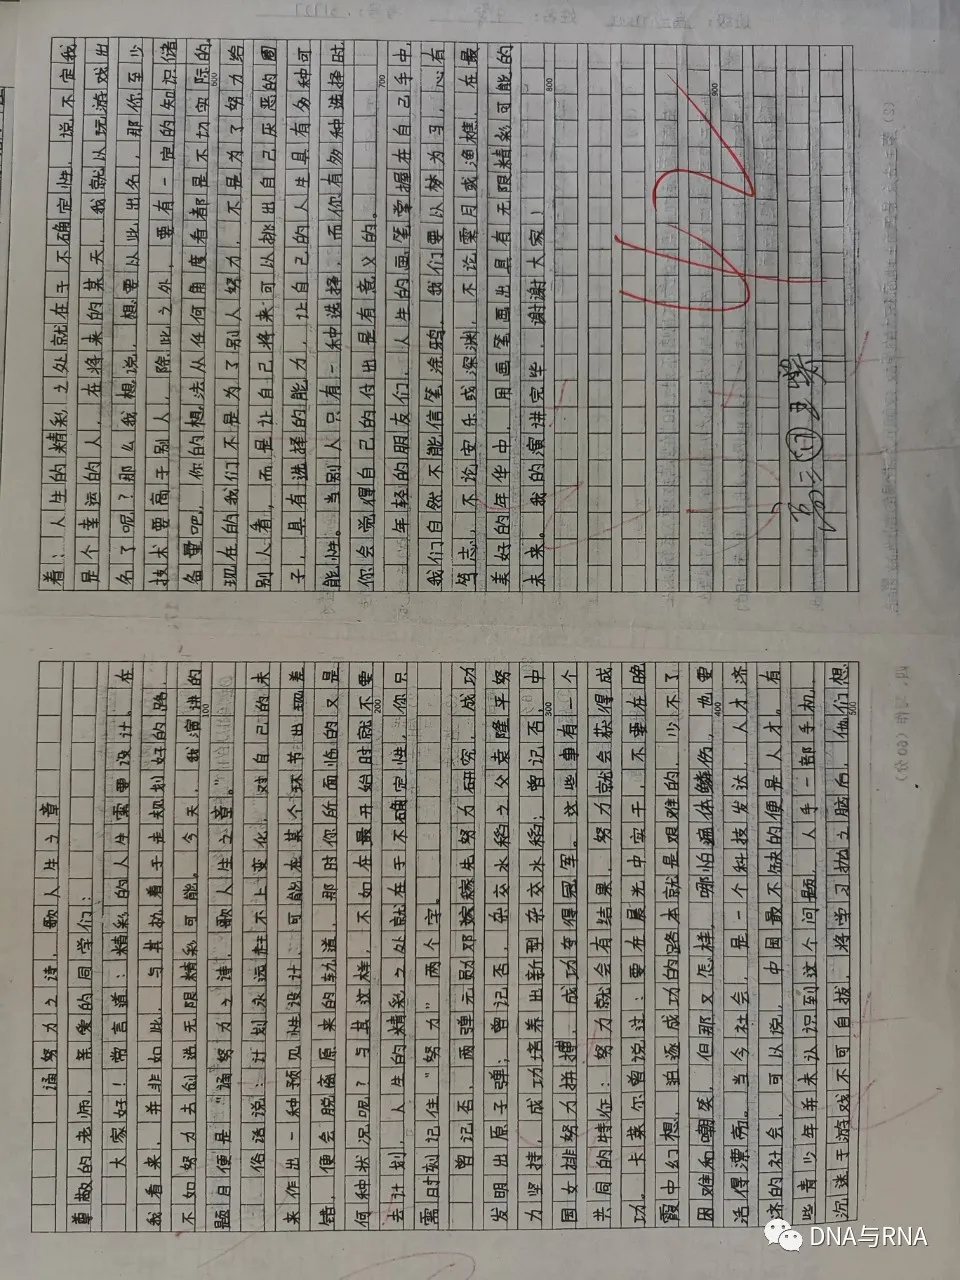 诵努力之诗，歌人生之章
尊敬的老师，亲爱的同学们：
大家好！常言道：精彩的人生需要设计。在
我看来，并非如此，与其执着于走规划好的路，
不如努力去创造无限精彩可能。今天，我演讲的
100
题目便是“诵努力之诗，歌人生之章。”
俗话说：计划永远赶不上变化，对自己的未
来作出一种预见性设计，可能在某个环节出现差
错，便会脱离原来的轨道，那时你所面临的又是
何种状况呢？与其这样，不如在最开始时就不要
200
去计划，人生的精彩之处就在于不确定性，你只
需时刻记住“努力”两个字。
曾记否，两弹元勋邓稼先努力研究，成功
发明出原子弹；曾记否，杂交水稻之父袁隆平努
力坚持，成功培养出新型杂交水稻；曾记否，中
300
国女排努力拼搏，成功夺得冠军。这些事有一个
共同的特征：努力就会有结果，努力就会获得成
功。卡莱尔曾说过：要在晨光中实干，不要在晚
霞中幻想，追逐成功的路本就是艰难的，少不了
困难和嘲笑，但那又怎样，哪怕遍体鳞伤，也要
400
活得漂亮。当今社会，是一个科技发达，人才济
济的社会，可以说，中国最不缺的便是人才。有
些青少年并未认识到这个问题，人手一部手机，
沉迷于游戏不可自拔，将学习抛之脑后，他们想
500
着：人生的精彩之处就在于不确定性，说不定我
是个幸运的人，在将来的某天，我就从玩游戏出
名了呢？那么我想说，想要以此出名，那你至少
技术要高于别人，除此之外，要有一定的知识储
备量吧，你的想法从任何角度看都是不切实际的。
600
现在的我们不是为了别人努力，不是为了努力给
别人看，而是让自己将来可以挑出自己厌恶的圈
子，具有选择的能力，让自己的人生具有多种可
能性。当别人只有一种选择，而你有多种选择时
你会觉得自己的付出是有意义的。
700
年轻的朋友们，人生的画笔掌握在自己手中，
我们自然不能信笔涂鸦，我们要以梦为马，心有
笃志，不论安乐或深渊，不论霁月或渔樵，在最
美好的年华中，用画笔画出具有无限精彩可能的
未来。我的演讲完毕，谢谢大家！
800
900
DNA与RNA